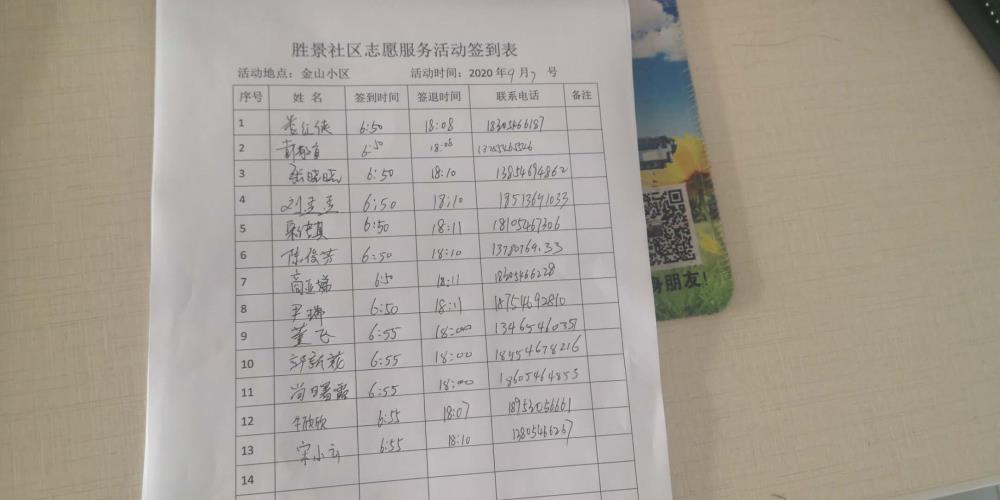 胜景社区志愿服务活动签到表
活动地点：金山小区 活动时间：2020年9月7号
序号 姓名 签到时间 签退时间 联系电话 备注
1 6:50 18:08 18305466187
2 6:50 18:08
3 张晓晓 6:50 18:10 13854694862
4 刘孟孟 6:50 18:10 18513641033
5 6:50 18:11 18105467306
6 陈俊芳 6:50 18:10
7 高亚娣 6:50 18:11 18305466228
8 尹娜 6:50 18:11 18754692810
9 董飞 6:55 18:00
10 邱新花 6:55 18:00 18954678216
11 尚曙霞 6:55 18:00 18605464855
12 牛欣欣 6:55 18:07
13 宋小云 6:55 18:10 13805466267
14
朋友!